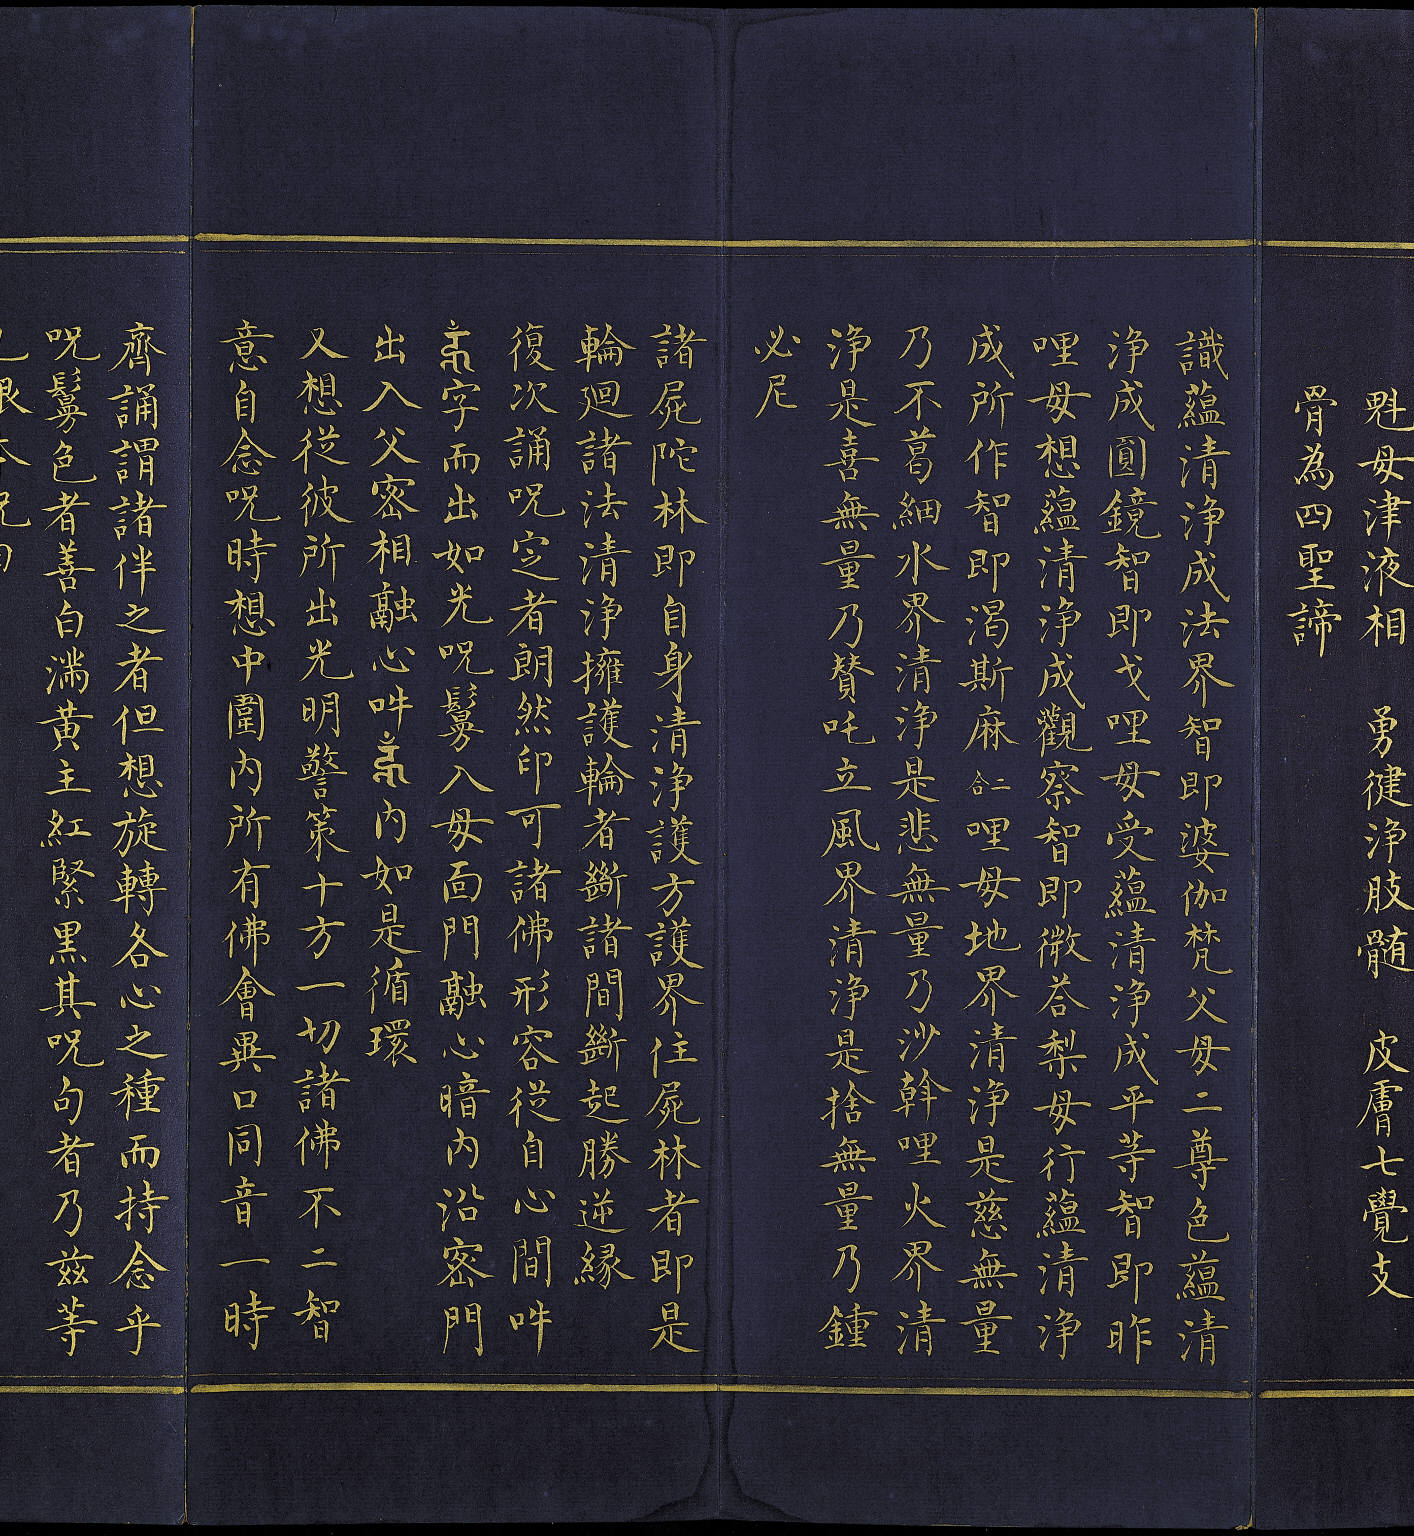 魁母津液相　勇健浄肢髄　皮膚七覺支
骨為四聖諦
識蘊清浄成法界智即婆伽梵父母二尊色蘊清
浄成圓鏡智即戈哩母受蘊清浄成平等智即昨
哩母想蘊清浄成觀察智即微荅梨母行蘊清浄
成所作智即渴斯麻二合哩母地界清浄是慈無量
乃不葛細水界清浄是悲無量乃沙斡哩火界清
浄是喜無量乃贊吒立風界清浄是捨無量乃鍾
必尼
諸屍陀林即自身清浄護方護界住屍林者即是
輪廻諸法清浄擁護輪者斷諸間斷起勝逆縁
復次誦呪定者朗然印可諸佛形容從自心間吽
字而出如光呪鬘入母面門融心暗内沿密門
出入父密相融心吽内如是循環
又想從彼所出光明警策十方一切諸佛不二智
意自念呪時想中圍内所有佛會異口同音一時
齊誦謂諸伴之者但想旋轉各心之種而持念乎
呪鬘色者善白満黄主紅緊黒其呪句者乃茲等